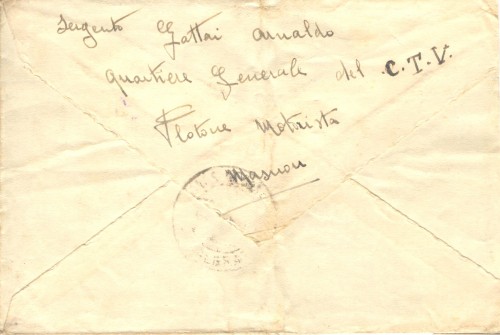 Sergento Gattai Arnaldo
Quartiere Generale del C.T.V.
Plotone Motorista
Masnou